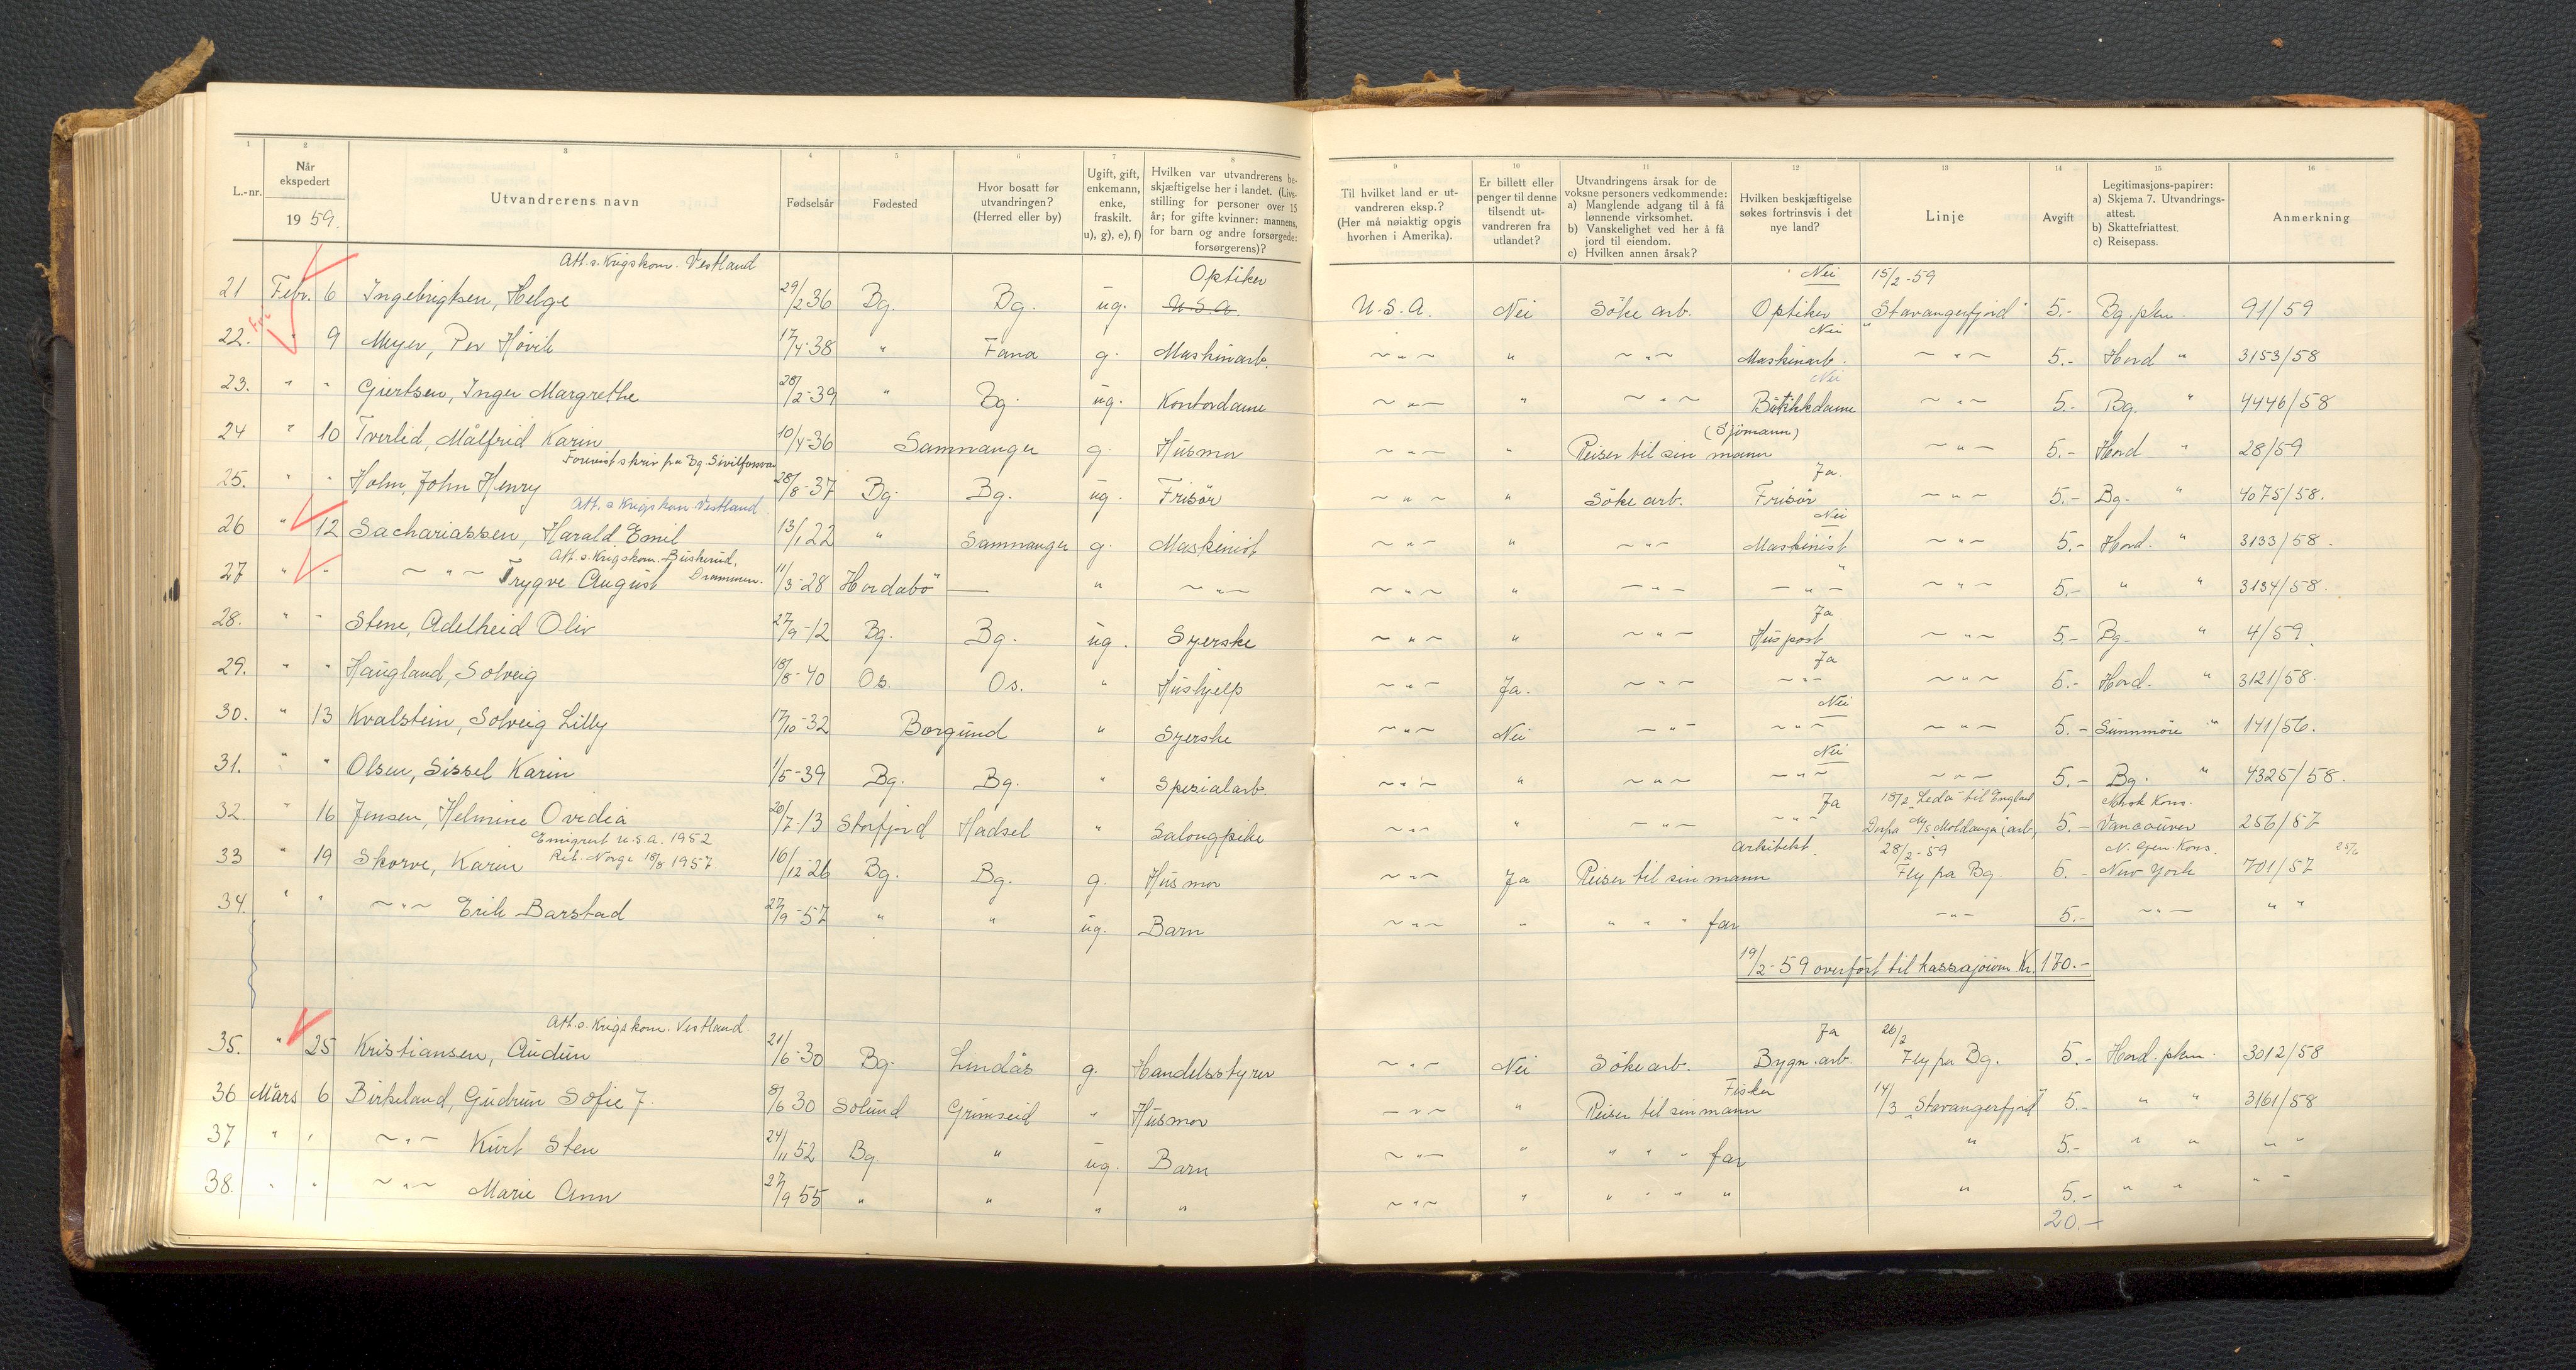 1 2 3 4 5 6 7 8 9 10 11 12 13 14 15 16
L.-nr. | Når ekspedert 19 59. | Utvandrerens navn | Fødselsår | Fødested | Hvor bosatt før utvandringen? (Herred eller by) | Ugift, gift, enkemann, enke, fraskilt. u), g), e), f) | Hvilken var utvandrerens beskjæftigelse her i landet. (Livsstilling for personer over 15 år; for gifte kvinner: mannens, for barn og andre forsørgede: forsørgerens)? | Til hvilket land er utvandreren eksp.? (Her må nøiaktig opgis hvorhen i Amerika). | Er billett eller penger til denne tilsendt utvandreren fra utlandet? | Utvandringens årsak for de voksne personers vedkommende: a) Manglende adgang til å få lønnende virksomhet. b) Vanskelighet ved her å få jord til eiendom. c) Hvilken annen årsak? | Hvilken beskjæftigelse søkes fortrinsvis i det nye land? | Linje | Avgift | Legitimasjons-papirer: a) Skjema 7. Utvandringsattest. b) Skattefriattest. c) Reisepass. | Anmerkning
Att. s. Krigskom. Vestland Optiker Nei 15/2-59
21 Febr. 6 Ingebrigtsen, Helge 29/2 36 Bg. Bg. ug. U.S.A. U.S.A. Nei Söke arb. Optiker "Stavangerfjord" 5.- Bg. pkm. 91/59
Nei
22. " 9 Meyer, Per Hövik 17/4-38 " Fana g. Maskinarb. ~"~ " ~"~ Maskinarb. ~"~ 5.- Hord " 3153/58
Nei
23. " " Giertsen, Inger Margrethe 28/2-39 " Bg. ug. Kontordame ~"~ " ~"~ Butikkdame ~"~ 5.- Bg. " 4446/58
(Sjömann)
24 " 10 Tverlid, Målfrid Karin 10/4-36 Samnanger g. Husmor ~"~ " Reiser til sin mann ~"~ 5.- Hord " 28/59
Bg Sivilforsvar Ja.
25. " " Holm, John Henry 28/8-37 Bg. Bg. ug. Frisör ~"~ " Söke arb. Frisör ~"~ 5.- Bg. " 4075/58.
Att. s Krigskom Vestland Nei
26 " 12 Sachariassen, Harald Emil 13/1 22 " Samnanger g. Maskinist ~"~ " ~"~ Maskinist ~"~ 5.- Hord. " 3133/58.
Att. s. Krigskom. Buskerud, Drammen. "
27 " " ~"~ Trygve August 11/3-28 Hordabö — " ~"~ ~"~ " ~"~ ~"~ ~"~ 5.- " " 3134/58.
Ja
28. " " Stene, Adelheid Oliv 27/9-12 Bg. Bg. ug. Syerske ~"~ " ~"~ Huspost ~"~ 5.- Bg. " 4/59.
Ja
29. " " Haugland, Solveig 18/8-40 Os. Os. " Hushjelp ~"~ Ja. ~"~ ~"~ ~"~ 5.- Hord. " 3121/58.
Nei
30. " 13 Kvalstein, Solveig Lilly 17/10-32 Borgund " Syerske ~"~ Nei ~"~ ~"~ ~"~ 5.- Sunnmöre " 141/56.
Nei
31. " " Olsen, Sissel Karin 1/5-39 Bg. Bg. " Spesialarb. ~"~ " ~"~ ~"~ ~"~ 5.- Bg. " 4325/58.
Ja 18/2 "Leda" til England Norsk Kons.
32 " 16 Jensen, Helmine Ovidia 20/7-13 Storfjord Hadsel " Salongpike ~"~ " ~"~ ~"~ Derfra M/S Moldanger (arb) 5.- Vancouver 256/57
Emigrert U.S.A. 1952 Arkitekt. 28/2-59 N. Gen. Kons.
33 " 19 Skorve, Karin Ret. Norge 18/8 1957. 16/12-26 Bg. Bg. g. Husmor ~"~ Ja Reiser til sin mann Fly fra Bg. 5.- New York 701/57
34. " " ~"~ Erik Barstad 27/9-57 " " ug. Barn ~"~ " " " " far ~"~ 5.- ~"~ " "
19/2-59 overfört til kassajourn Kr. 170.-
Att. s. Krigskom. Vestland. Ja 26/2
35. " 25 Kristiansen, Audun 21/6-30 Bg. Lindås g. Handelsstyrer ~"~ Nei Söke arb. Bygn. arb. Fly fra Bg. 5.- Hord. pkm. 3012/58
Fisker
36 Mars 6 Birkeland, Gudrun Sofie J. 8/6 30 Solund Grimseid " Husmor ~"~ " Reiser til sin mann 14/3 "Stavangerfjord" 5.- " " 3161/58
37 " " ~"~ Kurt Sten 24/11 52 Bg. " ug. Barn ~"~ " " " " far " 5.- " " " "
38. " " ~"~ Marie Ann 27/9 55 " " " " ~"~ " " " " " " 5.- " " " "
20.-